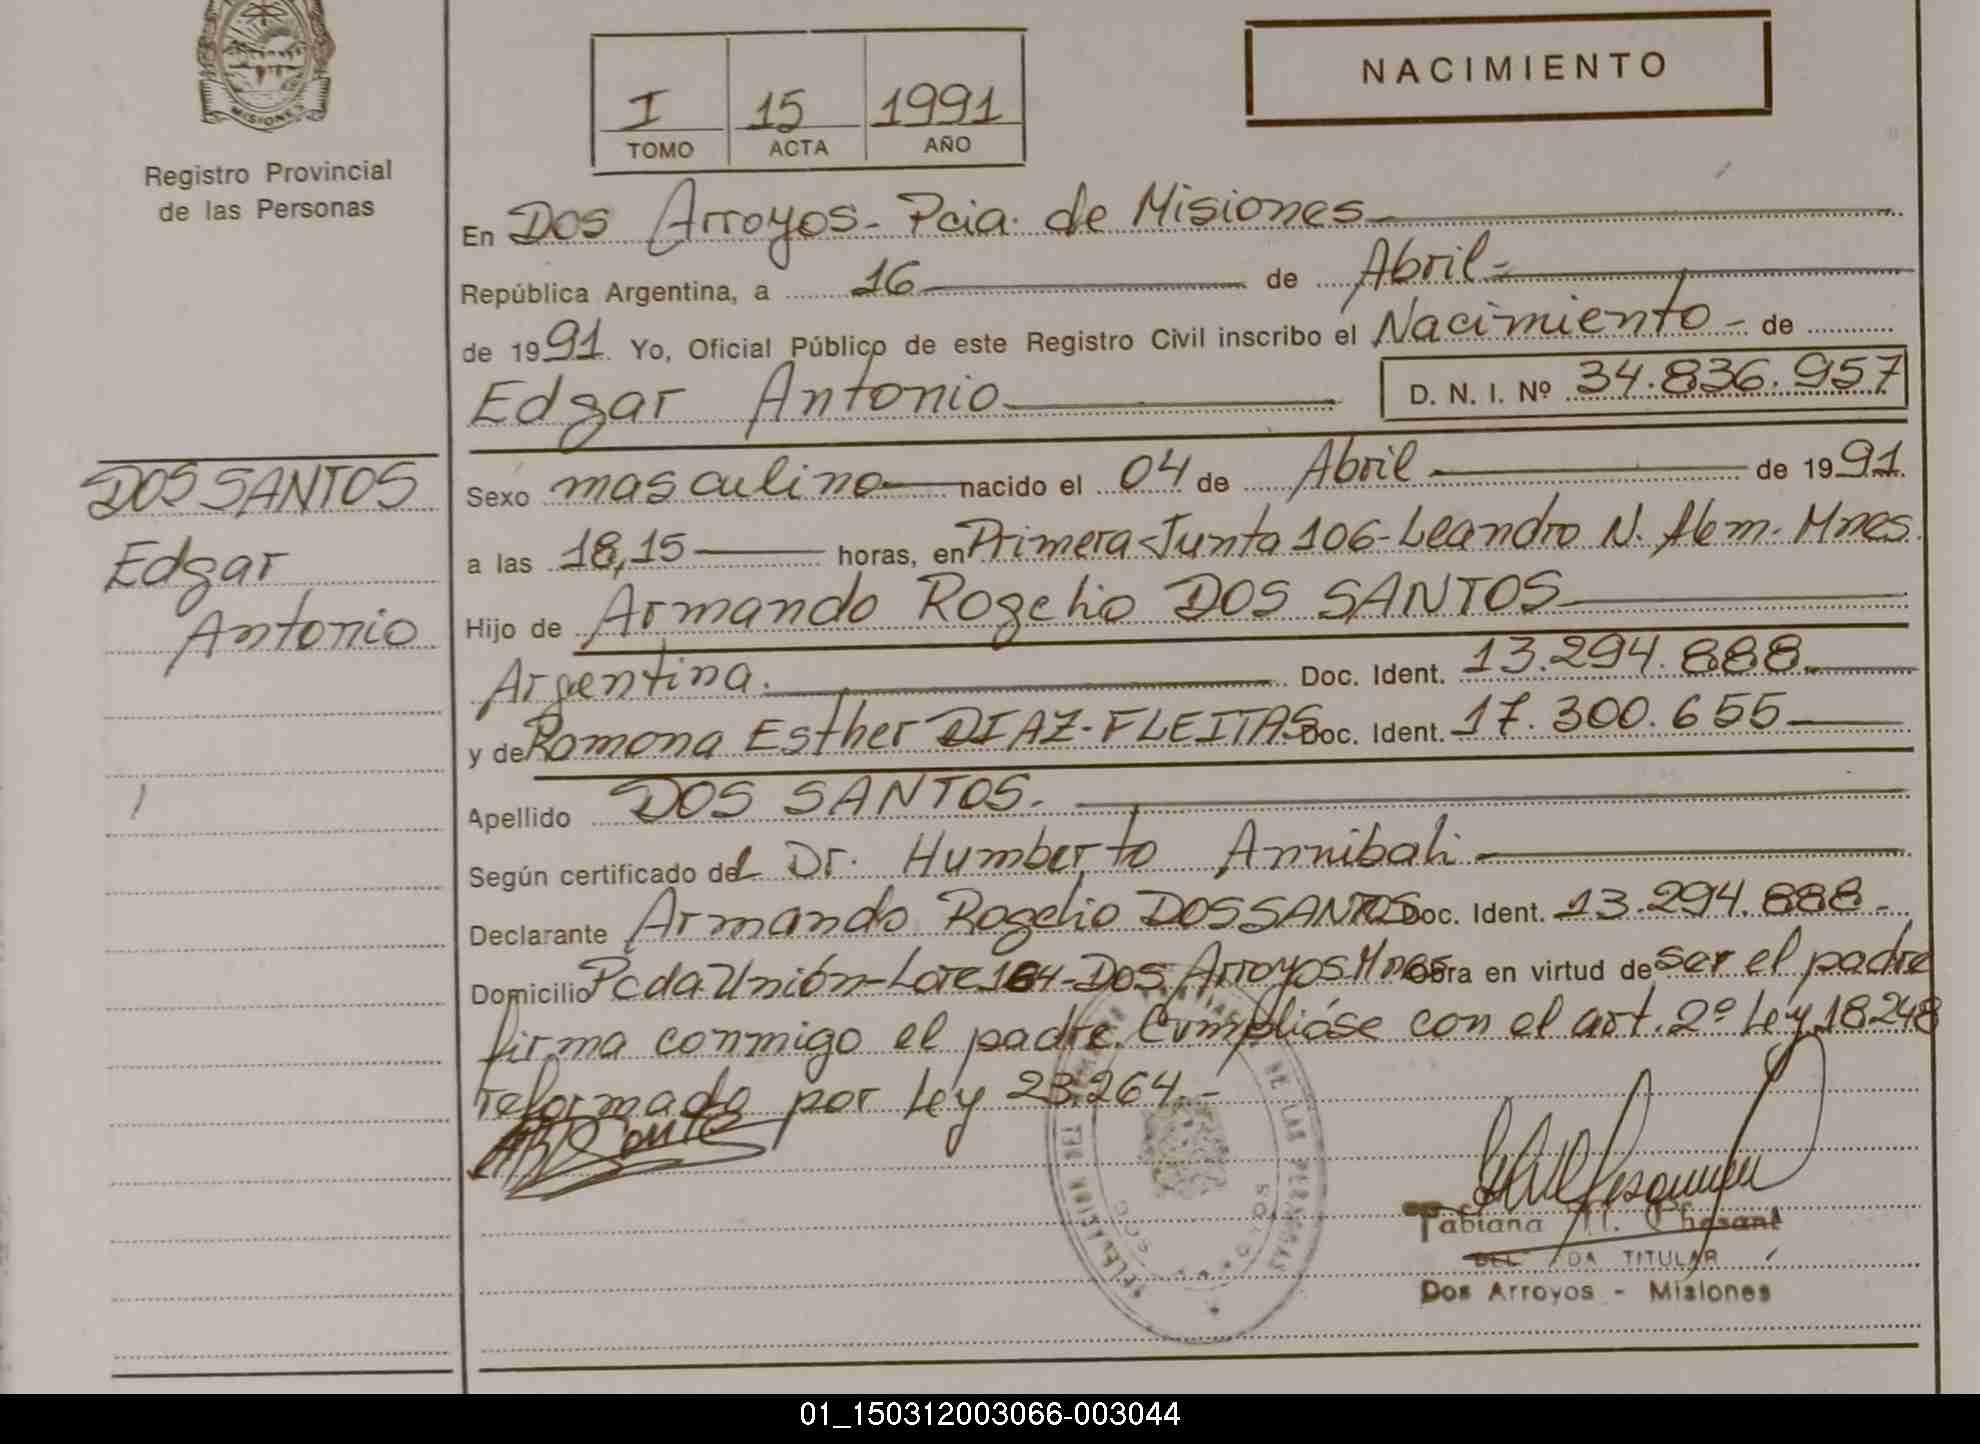 MISIONES
Registro Provincial
de las Personas
I 15 1991
TOMO ACTA AÑO
NACIMIENTO
En Dos Arroyos - Pcia. de Misiones
República Argentina, a 16 de Abril
de 1991. Yo, Oficial Público de este Registro Civil inscribo el Nacimiento - de
Edgar Antonio D. N. I. Nº 34.836.957
DOS SANTOS
Edgar
Antonio
Sexo masculino nacido el 04 de Abril de 1991.
a las 18,15 horas, en Primera Junta 106 - Leandro N. Alem - Mnes.
Hijo de Armando Rogelio DOS SANTOS
Argentina. Doc. Ident. 13.294.888.
y de Ramona Esther DIAZ - FLEITAS Doc. Ident. 17.300.655
Apellido DOS SANTOS.
Según certificado del Dr. Humberto Annibali
Declarante Armando Rogelio DOS SANTOS Doc. Ident. 13.294.888 -
Domicilio Pcda Unión - Lote 164 - Dos Arroyos Mnes Obra en virtud de ser el padre
firma conmigo el padre. Cumplióse con el art. 2º Ley 18248
reformado por Ley 23.264. -
DE LAS PERSONAS
Fabiana
TITULAR
Dos Arroyos - Misiones
01_150312003066-003044